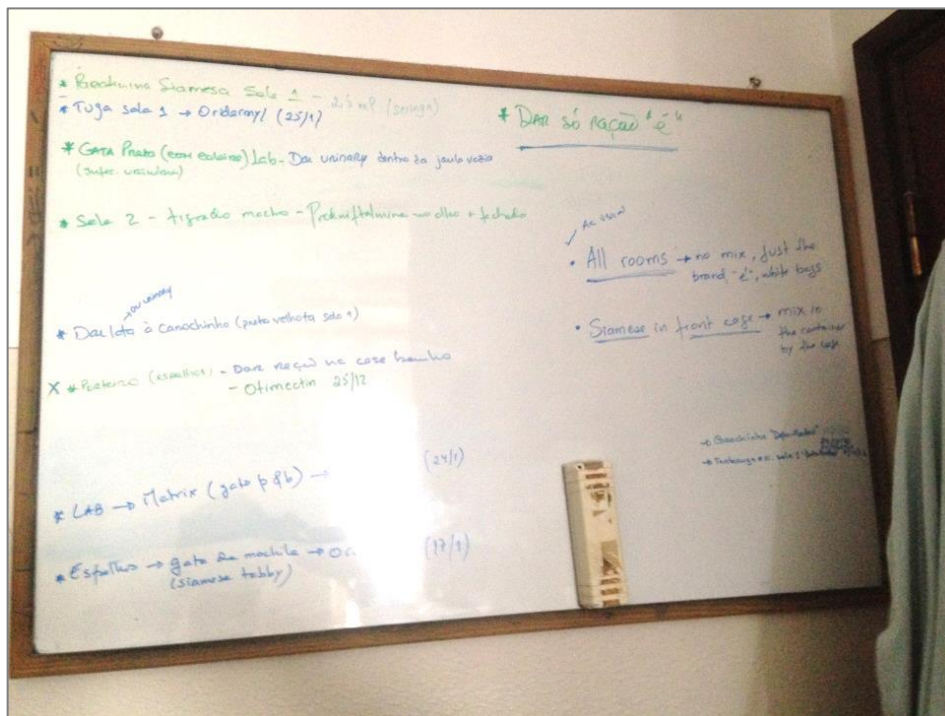 * Siamesa Sala 1 - 2,5 ml (seringa)
* Tuga sala 1 → Oridermyl (25/1)
* GATA Preta (com coleira) Lab - Dar urinary dentro da jaula vazia
(infec. urinária)
* Sala 2 - tigrado macho - no olho + fechado
→ ou urinary
* Dar lata à canochinha (preta velhota sala 1)
X * Porteiro (espelhos) - Dar ração na case banho
- Otimectin 25/12
* LAB → Matrix (gato p&b) → (24/1)
* Espelhos → gato da mochila → (17/1)
(siamese tabby)
* DAR SÓ RAÇÃO "é"
• All rooms → no mix, Just the
brand "é", white bags
• Siamese in front cage → mix in
the container
by the cage